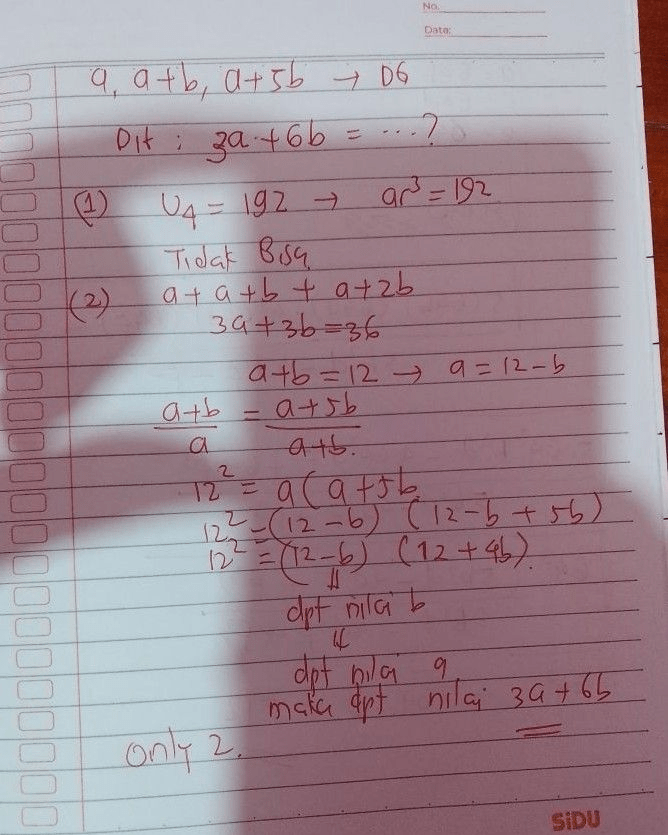 No.
Date:
a, a+b, a+5b → DG
Dit : 3a+6b = ...?
(1) U₄ = 192 → ar³ = 192
Tidak Bisa
(2) a + a+b + a+2b
3a+3b=36
a+b = 12 → a = 12-b
a+b/a = a+5b/a+b.
12² = a(a+5b
12² = (12-b) (12-b+5b)
12² = (12-b) (12+4b).
⇓
dpt nilai b
⇓
dpt nilai a
maka dpt nilai 3a+6b
only 2.
SiDU